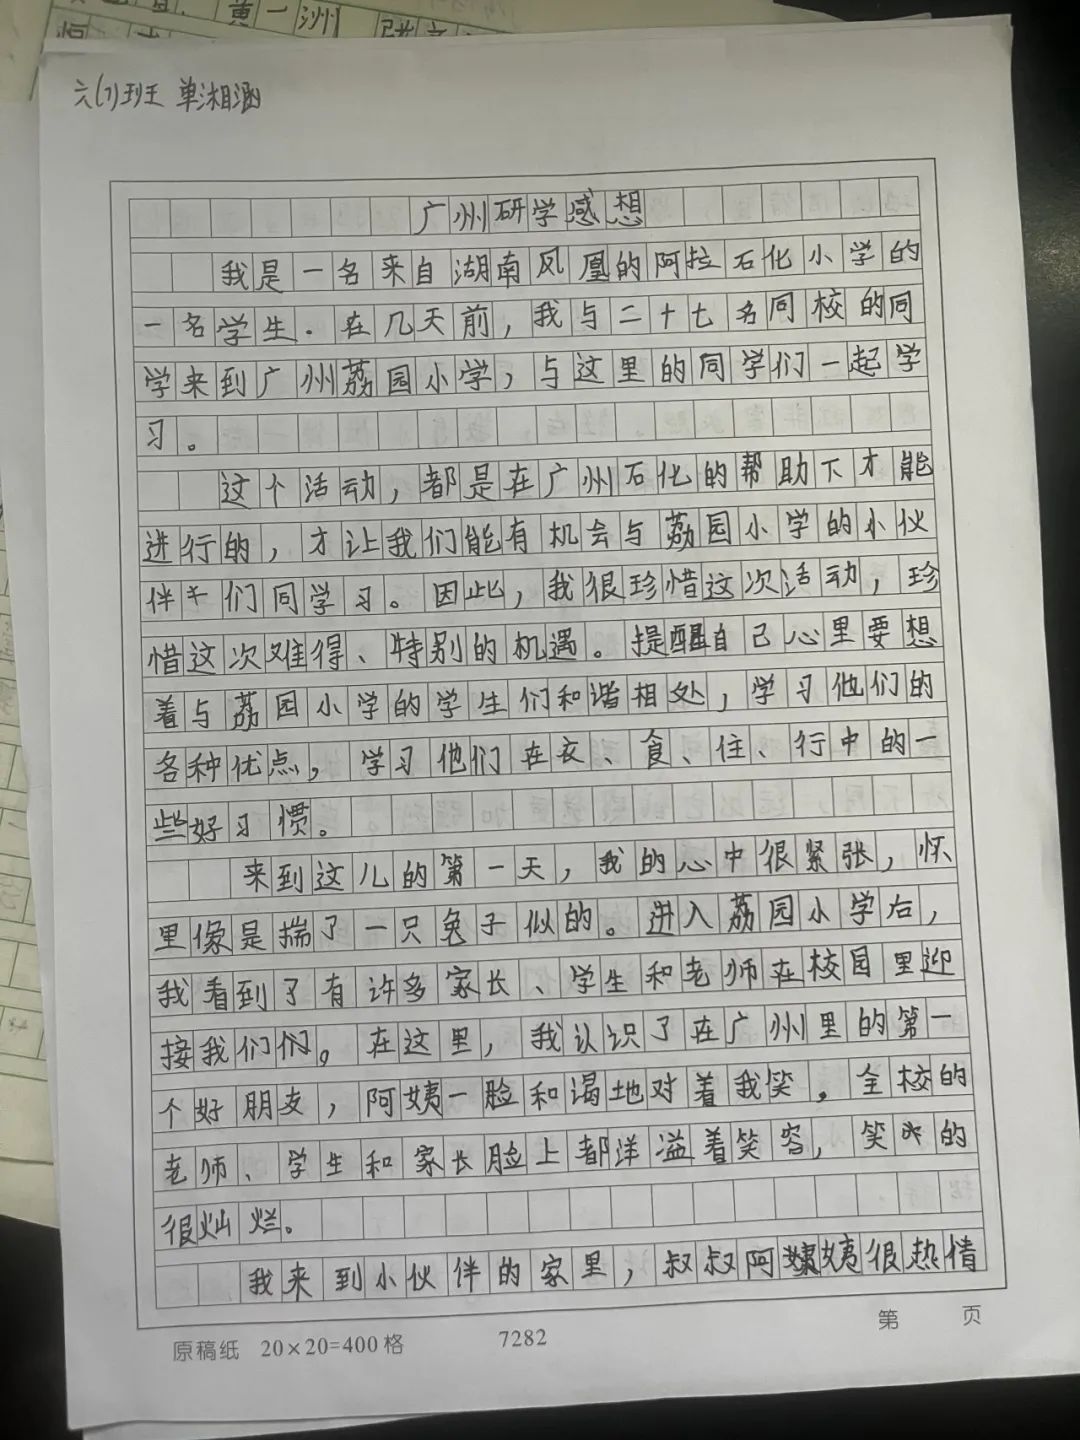 六(1)班 单湘涵
广州研学感想
我是一名来自湖南凤凰的阿拉石化小学的
一名学生.在几天前，我与二十七名同校的同
学来到广州荔园小学，与这里的同学们一起学
习。
这个活动，都是在广州石化的帮助下才能
进行的，才让我们能有机会与荔园小学的小伙
伴们同学习。因此，我很珍惜这次活动，珍
惜这次难得、特别的机遇。提醒自己心里要想
着与荔园小学的学生们和谐相处，学习他们的
各种优点，学习他们在衣、食、住、行中的一
些好习惯。
来到这儿的第一天，我的心中很紧张，怀
里像是揣了一只兔子似的。进入荔园小学后，
我看到了有许多家长、学生和老师在校园里迎
接我们们。在这里，我认识了在广州里的第一
个好朋友，阿姨一脸和谒地对着我笑。全校的
老师、学生和家长脸上都洋溢着笑容，笑的
很灿烂。
我来到小伙伴的家里，叔叔阿姨很热情
第 页
原稿纸 20×20=400格 7282